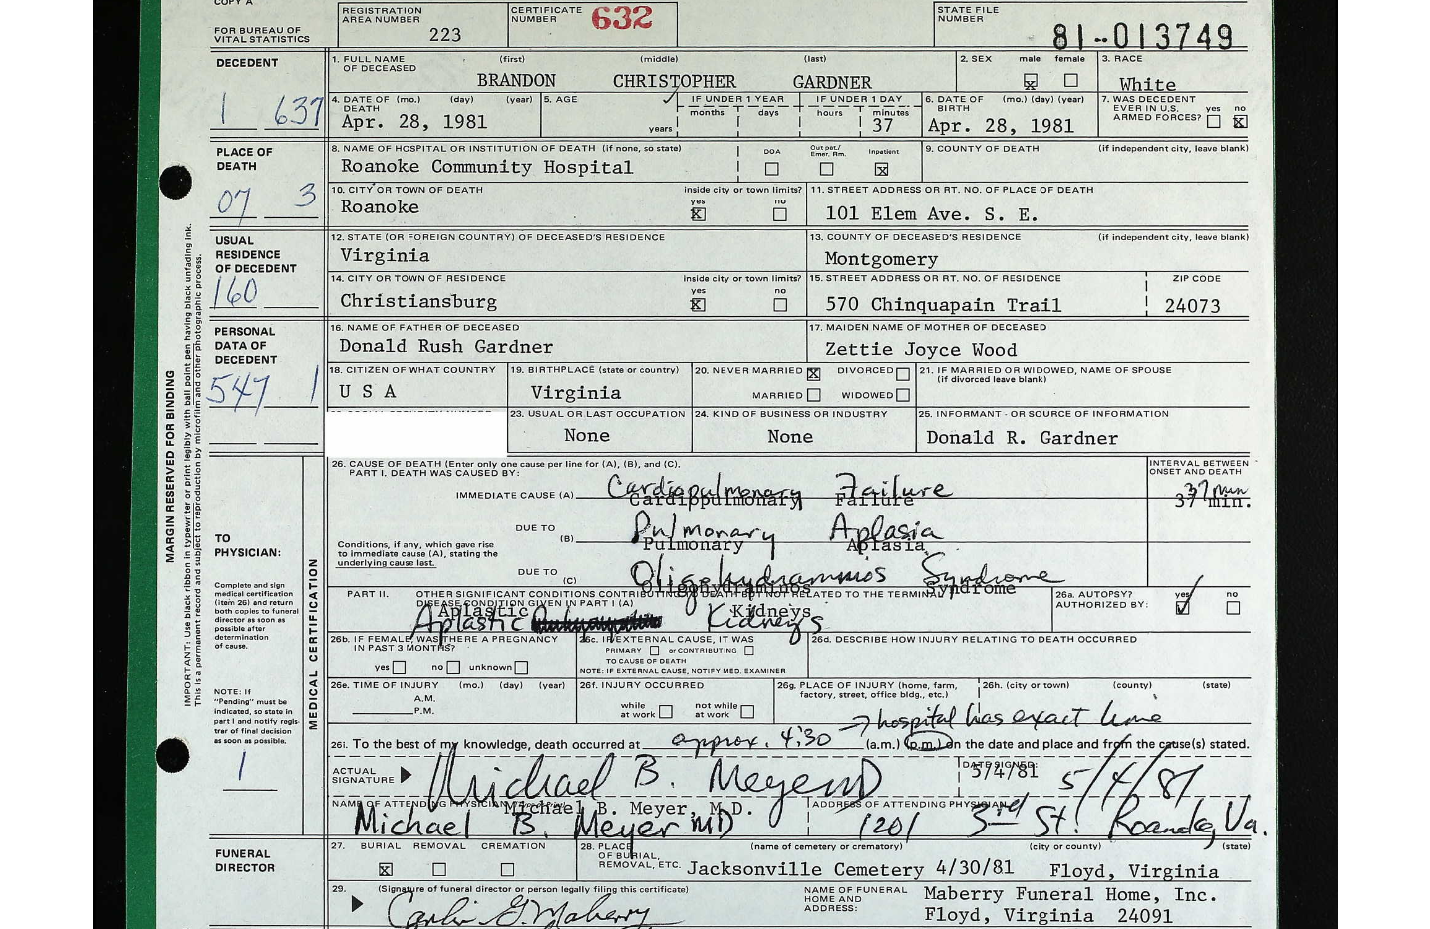 COPY A
FOR BUREAU OF
VITAL STATISTICS
REGISTRATION
AREA NUMBER 223
CERTIFICATE
NUMBER 632
STATE FILE
NUMBER 81-013749
DECEDENT
1 637
1. FULL NAME
OF DECEASED (first) (middle) (last)
BRANDON CHRISTOPHER GARDNER
2. SEX male female
X
3. RACE
White
4. DATE OF DEATH (mo.) (day) (year)
Apr. 28, 1981
5. AGE
years
IF UNDER 1 YEAR
months days
IF UNDER 1 DAY
hours minutes
37
6. DATE OF BIRTH (mo.) (day) (year)
Apr. 28, 1981
7. WAS DECEDENT
EVER IN U.S.
ARMED FORCES? yes no
X
PLACE OF
DEATH
07 3
8. NAME OF HOSPITAL OR INSTITUTION OF DEATH (if none, so state)
Roanoke Community Hospital
DOA Out pat./ Emer. Rm. Inpatient
X
9. COUNTY OF DEATH (if independent city, leave blank)
10. CITY OR TOWN OF DEATH inside city or town limits?
Roanoke yes no
X
11. STREET ADDRESS OR RT. NO. OF PLACE OF DEATH
101 Elem Ave. S. E.
USUAL
RESIDENCE
OF DECEDENT
160
12. STATE (OR FOREIGN COUNTRY) OF DECEASED'S RESIDENCE
Virginia
13. COUNTY OF DECEASED'S RESIDENCE (if independent city, leave blank)
Montgomery
14. CITY OR TOWN OF RESIDENCE inside city or town limits?
Christiansburg yes no
X
15. STREET ADDRESS OR RT. NO. OF RESIDENCE ZIP CODE
570 Chinquapain Trail 24073
PERSONAL
DATA OF
DECEDENT
547 1
16. NAME OF FATHER OF DECEASED
Donald Rush Gardner
17. MAIDEN NAME OF MOTHER OF DECEASED
Zettie Joyce Wood
18. CITIZEN OF WHAT COUNTRY
U S A
19. BIRTHPLACE (state or country)
Virginia
20. NEVER MARRIED X DIVORCED
MARRIED WIDOWED
21. IF MARRIED OR WIDOWED, NAME OF SPOUSE
(if divorced leave blank)
23. USUAL OR LAST OCCUPATION
None
24. KIND OF BUSINESS OR INDUSTRY
None
25. INFORMANT - OR SOURCE OF INFORMATION
Donald R. Gardner
MARGIN RESERVED FOR BINDING
IMPORTANT: Use black ribbon in typewriter or print legibly with ball point pen having black unfading ink.
This is a permanent record and subject to reproduction by microfilm and other photographic process.
TO
PHYSICIAN:
Complete and sign
medical certification
(item 26) and return
both copies to funeral
director as soon as
possible after
determination
of cause.
NOTE: If
"Pending" must be
indicated, so state in
part I and notify regis-
trar of final decision
as soon as possible.
1
MEDICAL CERTIFICATION
26. CAUSE OF DEATH (Enter only one cause per line for (A), (B), and (C).
PART I. DEATH WAS CAUSED BY:
INTERVAL BETWEEN
ONSET AND DEATH
IMMEDIATE CAUSE (A) Cardiopulmonary Failure 37 min
Cardiopulmonary Failure 37 min.
Conditions, if any, which gave rise
to immediate cause (A), stating the
underlying cause last.
DUE TO
(B) Pulmonary Aplasia
Pulmonary Aplasia
DUE TO
(C) Oligohydramnios Syndrome
Oligohydramnios Syndrome
PART II. OTHER SIGNIFICANT CONDITIONS CONTRIBUTING TO DEATH BUT NOT RELATED TO THE TERMINAL
DISEASE CONDITION GIVEN IN PART I (A)
Aplastic Kidneys
Aplastic Kidneys
26a. AUTOPSY?
AUTHORIZED BY: yes no
26b. IF FEMALE, WAS THERE A PREGNANCY
IN PAST 3 MONTHS?
yes no unknown
26c. IF EXTERNAL CAUSE, IT WAS
PRIMARY or CONTRIBUTING
TO CAUSE OF DEATH
NOTE: IF EXTERNAL CAUSE, NOTIFY MED. EXAMINER
26d. DESCRIBE HOW INJURY RELATING TO DEATH OCCURRED
26e. TIME OF INJURY (mo.) (day) (year)
A.M.
P.M.
26f. INJURY OCCURRED
while at work not while at work
26g. PLACE OF INJURY (home, farm,
factory, street, office bldg., etc.)
26h. (city or town) (county) (state)
→ hospital has exact time
26i. To the best of my knowledge, death occurred at approx. 4:30 (a.m.) (p.m.) on the date and place and from the cause(s) stated.
ACTUAL
SIGNATURE Michael B. Meyer MD
DATE SIGNED:
5/4/81 5/4/81
NAME OF ATTENDING PHYSICIAN
Michael B. Meyer, M.D.
Michael B. Meyer MD
ADDRESS OF ATTENDING PHYSICIAN
1201 3rd St. Roanoke, Va.
FUNERAL
DIRECTOR
27. BURIAL REMOVAL CREMATION
X
28. PLACE
OF BURIAL,
REMOVAL, ETC. (name of cemetery or crematory) (city or county) (state)
Jacksonville Cemetery 4/30/81 Floyd, Virginia
29. (Signature of funeral director or person legally filing this certificate)
NAME OF FUNERAL
HOME AND
ADDRESS:
Maberry Funeral Home, Inc.
Floyd, Virginia 24091